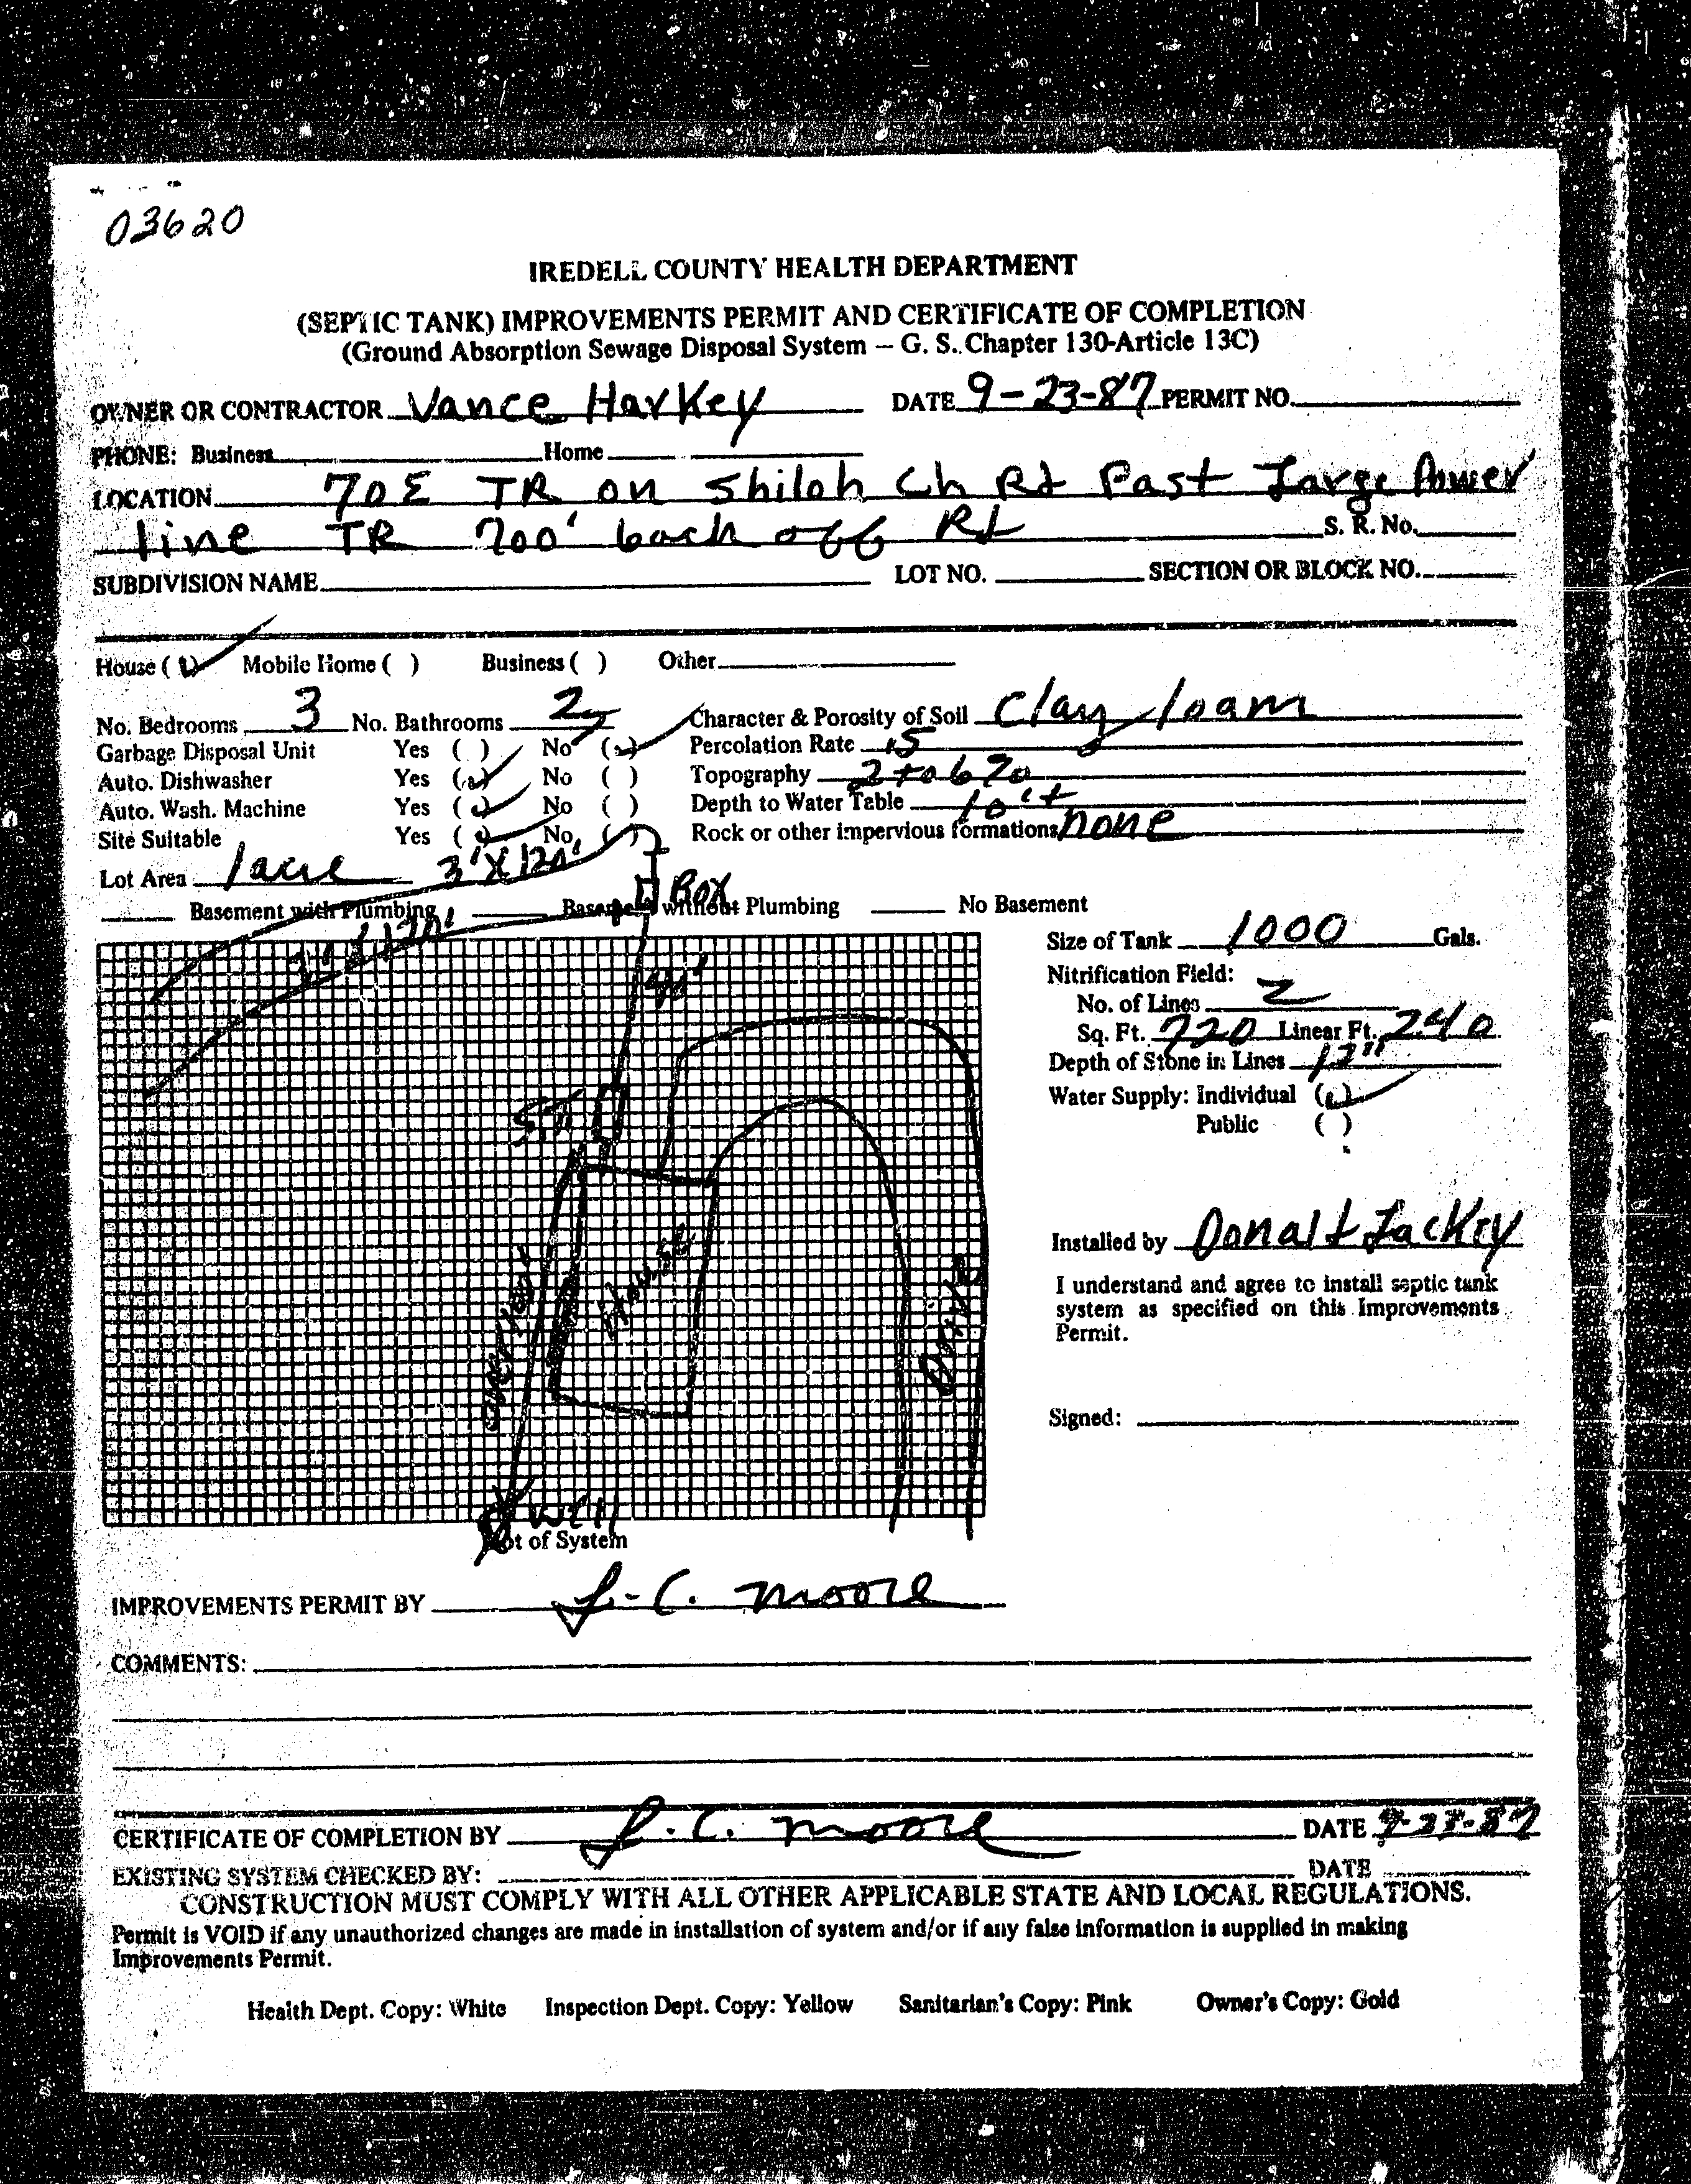 03620
IREDELL COUNTY HEALTH DEPARTMENT
(SEPTIC TANK) IMPROVEMENTS PERMIT AND CERTIFICATE OF COMPLETION
(Ground Absorption Sewage Disposal System – G. S. Chapter 130-Article 13C)
OWNER OR CONTRACTOR Vance Harkey DATE 9-23-87 PERMIT NO.
PHONE: Business Home
LOCATION 70E TR on Shiloh Ch Rd Past Large Power
line TR 700' back off Rd S. R. No.
SUBDIVISION NAME LOT NO. SECTION OR BLOCK NO.
House ( ) Mobile Home ( ) Business ( ) Other
No. Bedrooms 3 No. Bathrooms 2 Character & Porosity of Soil Clay loam
Garbage Disposal Unit Yes ( ) No ( ) Percolation Rate 15
Auto. Dishwasher Yes ( ) No ( ) Topography 2 to 6 %
Auto. Wash. Machine Yes ( ) No ( ) Depth to Water Table 10'+
Site Suitable Yes ( ) No ( ) Rock or other impervious formations none
Lot Area 1 acre 3'X120'
Box
Basement with Plumbing Basement without Plumbing No Basement
3'X120'
Size of Tank 1000 Gals.
Nitrification Field:
No. of Lines 2
Sq. Ft. 720 Linear Ft. 240
Depth of Stone in Lines 12"
Water Supply: Individual ( )
Public ( )
S.T.
House
Drive
Installed by Donald Lackey
I understand and agree to install septic tank
system as specified on this Improvements
Permit.
Signed:
Well
Plot of System
IMPROVEMENTS PERMIT BY L.C. Moore
COMMENTS:
CERTIFICATE OF COMPLETION BY L.C. Moore DATE 9-23-87
EXISTING SYSTEM CHECKED BY: DATE
CONSTRUCTION MUST COMPLY WITH ALL OTHER APPLICABLE STATE AND LOCAL REGULATIONS.
Permit is VOID if any unauthorized changes are made in installation of system and/or if any false information is supplied in making
Improvements Permit.
Health Dept. Copy: White Inspection Dept. Copy: Yellow Sanitarian's Copy: Pink Owner's Copy: Gold